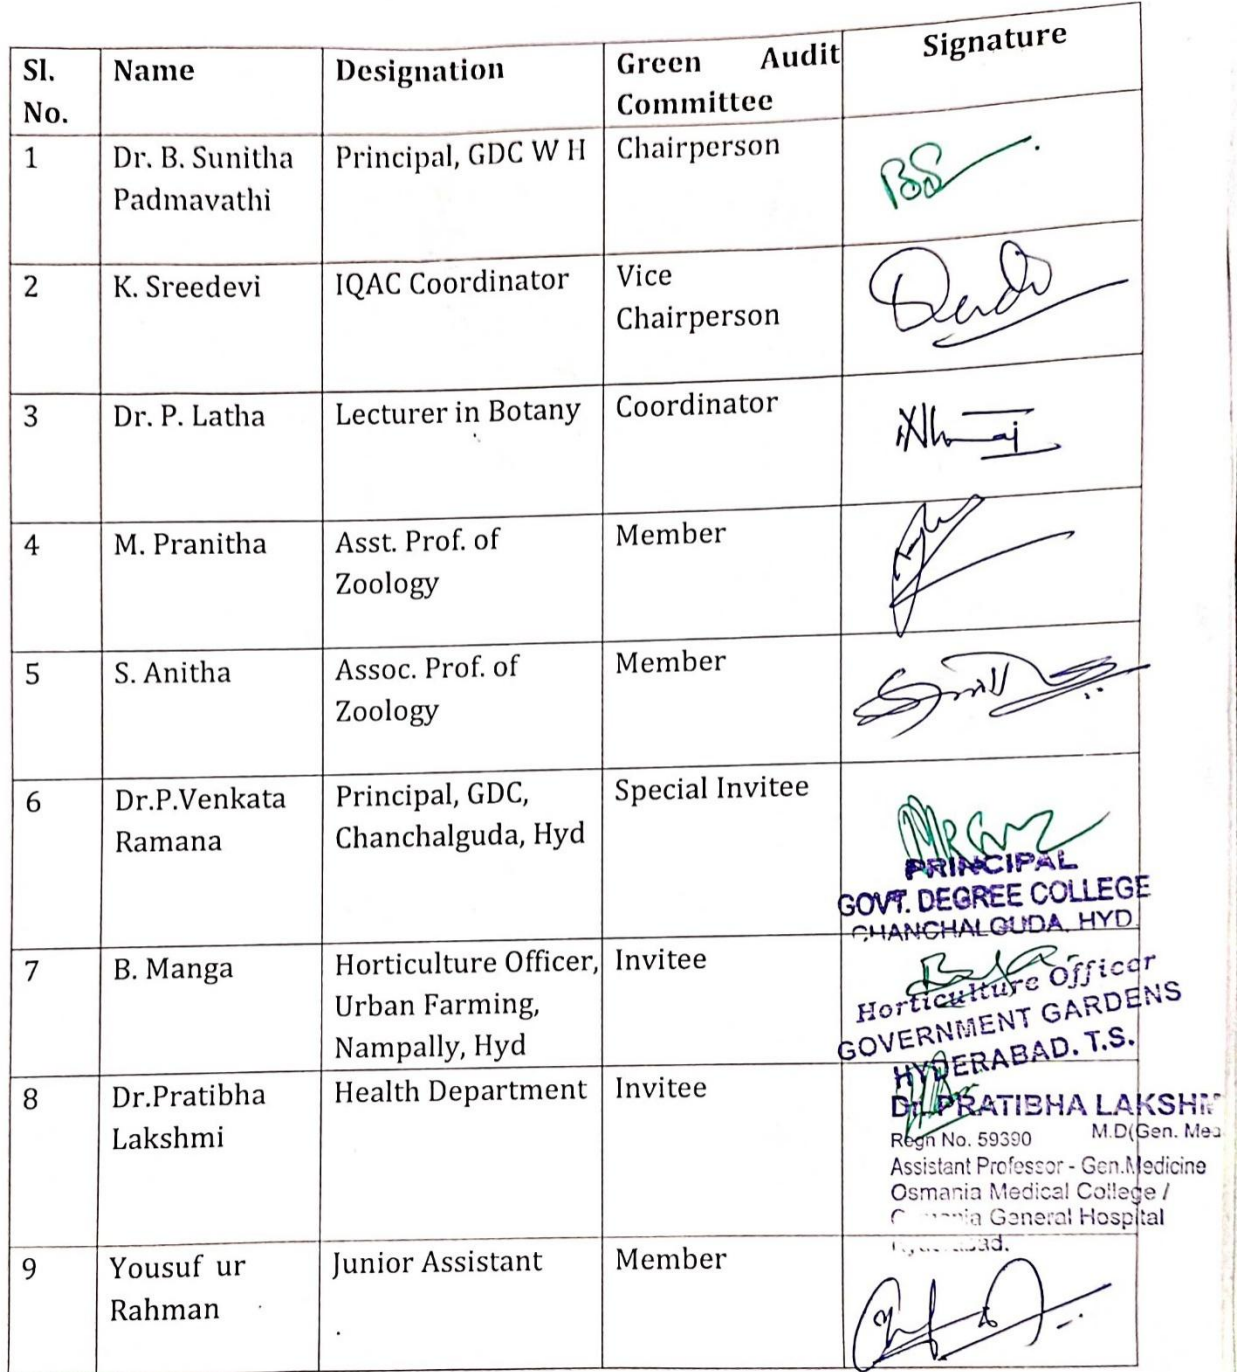 Sl. No.
Name
Designation
Green Audit Committee
Signature
1
Dr. B. Sunitha
Padmavathi
Principal, GDC W H
Chairperson
2
K. Sreedevi
IQAC Coordinator
Vice
Chairperson
3
Dr. P. Latha
Lecturer in Botany
Coordinator
4
M. Pranitha
Asst. Prof. of
Zoology
Member
5
S. Anitha
Assoc. Prof. of
Zoology
Member
6
Dr.P.Venkata
Ramana
Principal, GDC,
Chanchalguda, Hyd
Special Invitee
PRINCIPAL
GOVT. DEGREE COLLEGE
CHANCHALGUDA, HYD.
7
B. Manga
Horticulture Officer,
Urban Farming,
Nampally, Hyd
Invitee
Horticulture Officer
GOVERNMENT GARDENS
HYDERABAD. T.S.
8
Dr.Pratibha
Lakshmi
Health Department
Invitee
Dr. PRATIBHA LAKSHM
Regn No. 59390 M.D(Gen. Med
Assistant Professor - Gen.Medicine
Osmania Medical College /
General Hospital
9
Yousuf ur
Rahman
Junior Assistant
Member